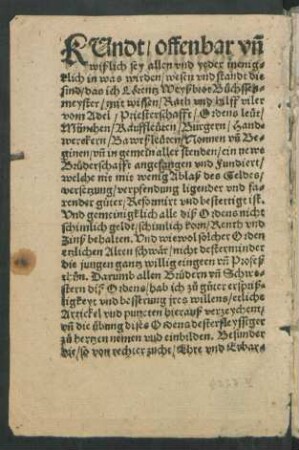 KUndt / offenbar vñ
wißlich sey allen vnd yeder menig-
klich in was wirden / wesen vnd stande die
sind / das ich Lörintz Weyßbiss Büchssen-
meyster / mit wissen / Rath vnd hilff viler
vom Adel / Priesterschafft / Ordens leüt /
München / Kaufleüten / Burgern / Hand-
werckern / Bawrßleüten / Nonnen vñ Be-
ginen / vñ in gemein aller stenden / ein newe
Brüderschafft angefangen vnd Fundiert /
welche nie mit wenig Ablaß des Geldes /
versetzung / verpfendung ligender vnd fa-
render güter / Resormirt vnd bestettigt ist.
Vnd gemeinigklich alle diß Ordens nicht
schimlich geldt / schimlich korn / Renth vnd
Zinß behalten. Vnd wiewol solcher Orden
etzlichen Alten schwär / nicht destermınder
die jungen gantz willig eingeen vñ Profeß
thon. Darumb allen Brüdern vñ Schwe-
stern diß Ordens / hab ich zů güter ersprieß-
ligkeyt vnd besserung jres willens / etliche
Artickel vnd puncten hierauß verzeychent /
vñ die übung dises Ordens desterfleyssiger
zů hertzen nemen vnd einbilden. Besunder
die / so von rechter zucht / Ehre vnd Erbar-